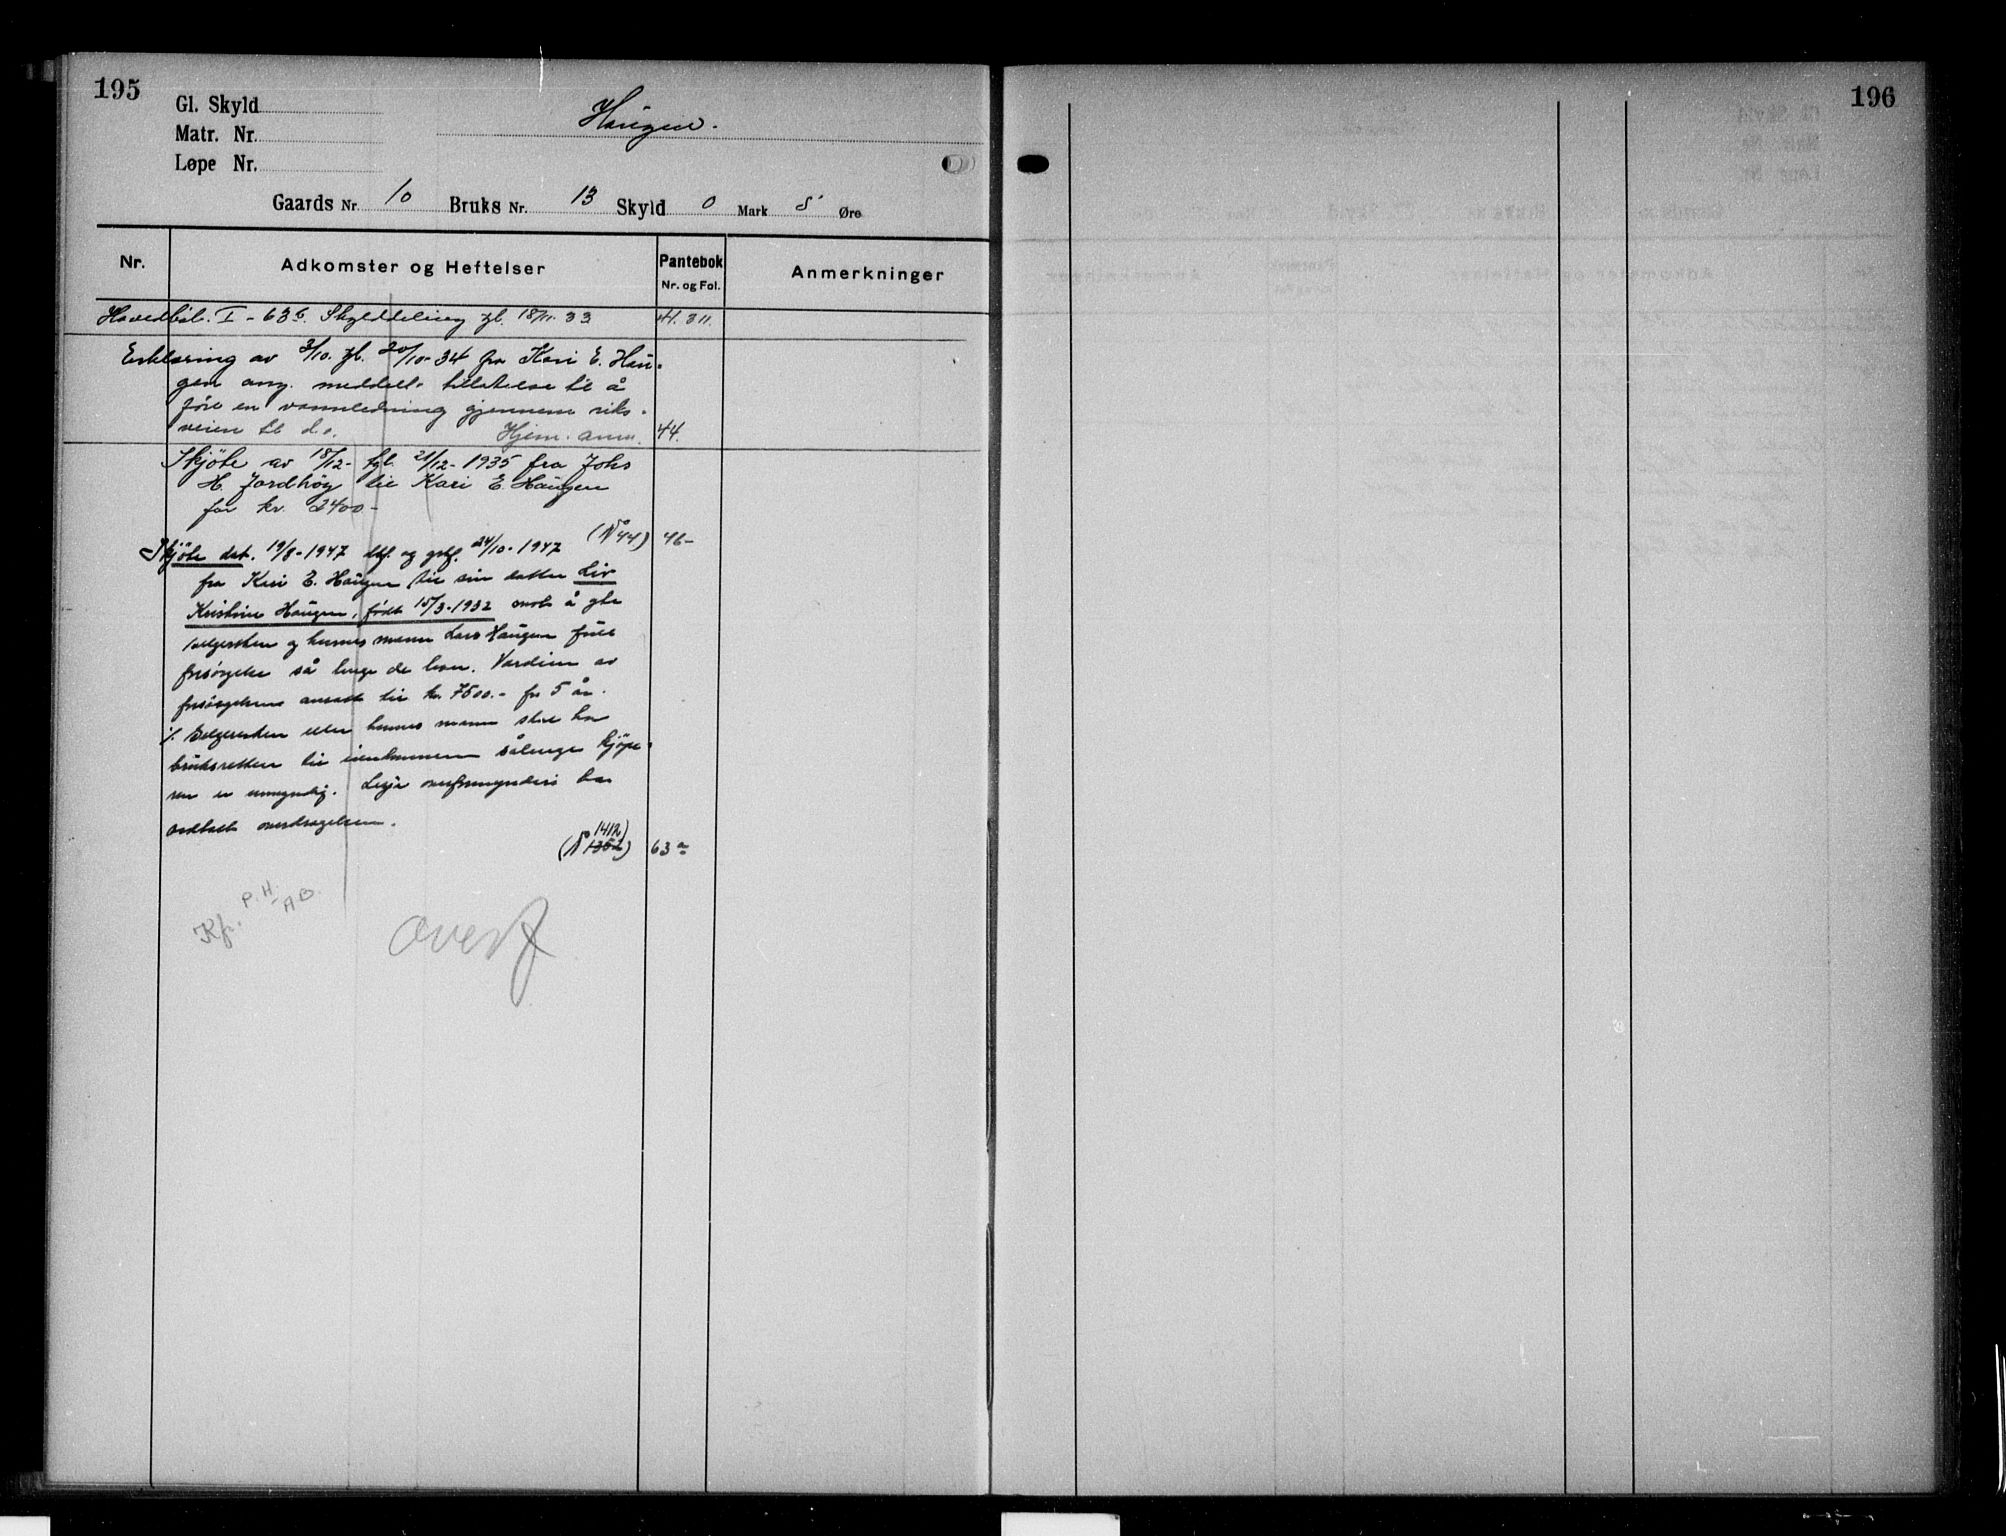 195
Gl. Skyld
Matr. Nr.
Løpe Nr.
Haugen.
Gaards Nr. 10 Bruks Nr. 13 Skyld 0 Mark 5 Øre
Nr. Adkomster og Heftelser Pantebok Nr. og Fol. Anmerkninger
Hovedbøl. I - 63 b. Skylddeling tgl. 18/11. 33 41. 311.
Erklæring av 3/10. tgl. 20/10-34 fra Kari E. Hau-
gen ang. meddelt tillatelse til å
føre en vannledning gjennem riks-
veien til do. Hjem. anm. 44.
Skjöte av 18/12- tgl. 21/12-1935 fra Johs
H. Jordhöy til Kari E. Haugen
for kr 2400-
(№ 44) 46-
Skjöte dat. 19/8-1947 dbf. og gbf. 24/10-1947
fra Kari E. Haugen til sin datter Liv
Kristine Haugen, født 15/3-1932 mot å gke
selgersken og hennes mann Lars Haugen full
forsörgelse så lenge de lever. Verdien av
forsörgelsene ansatt til kr. 7500.- for 5 år.
% Selgersken eller hennes mann skal ha
bruksretten til eiendommen sålenge kjöpe-
ren er umyndig. Lesja overformynderi har
vedtatt overdragelsen.
1412
(№ 1352) 63 a
Kf. P.H. AB.
overf
196